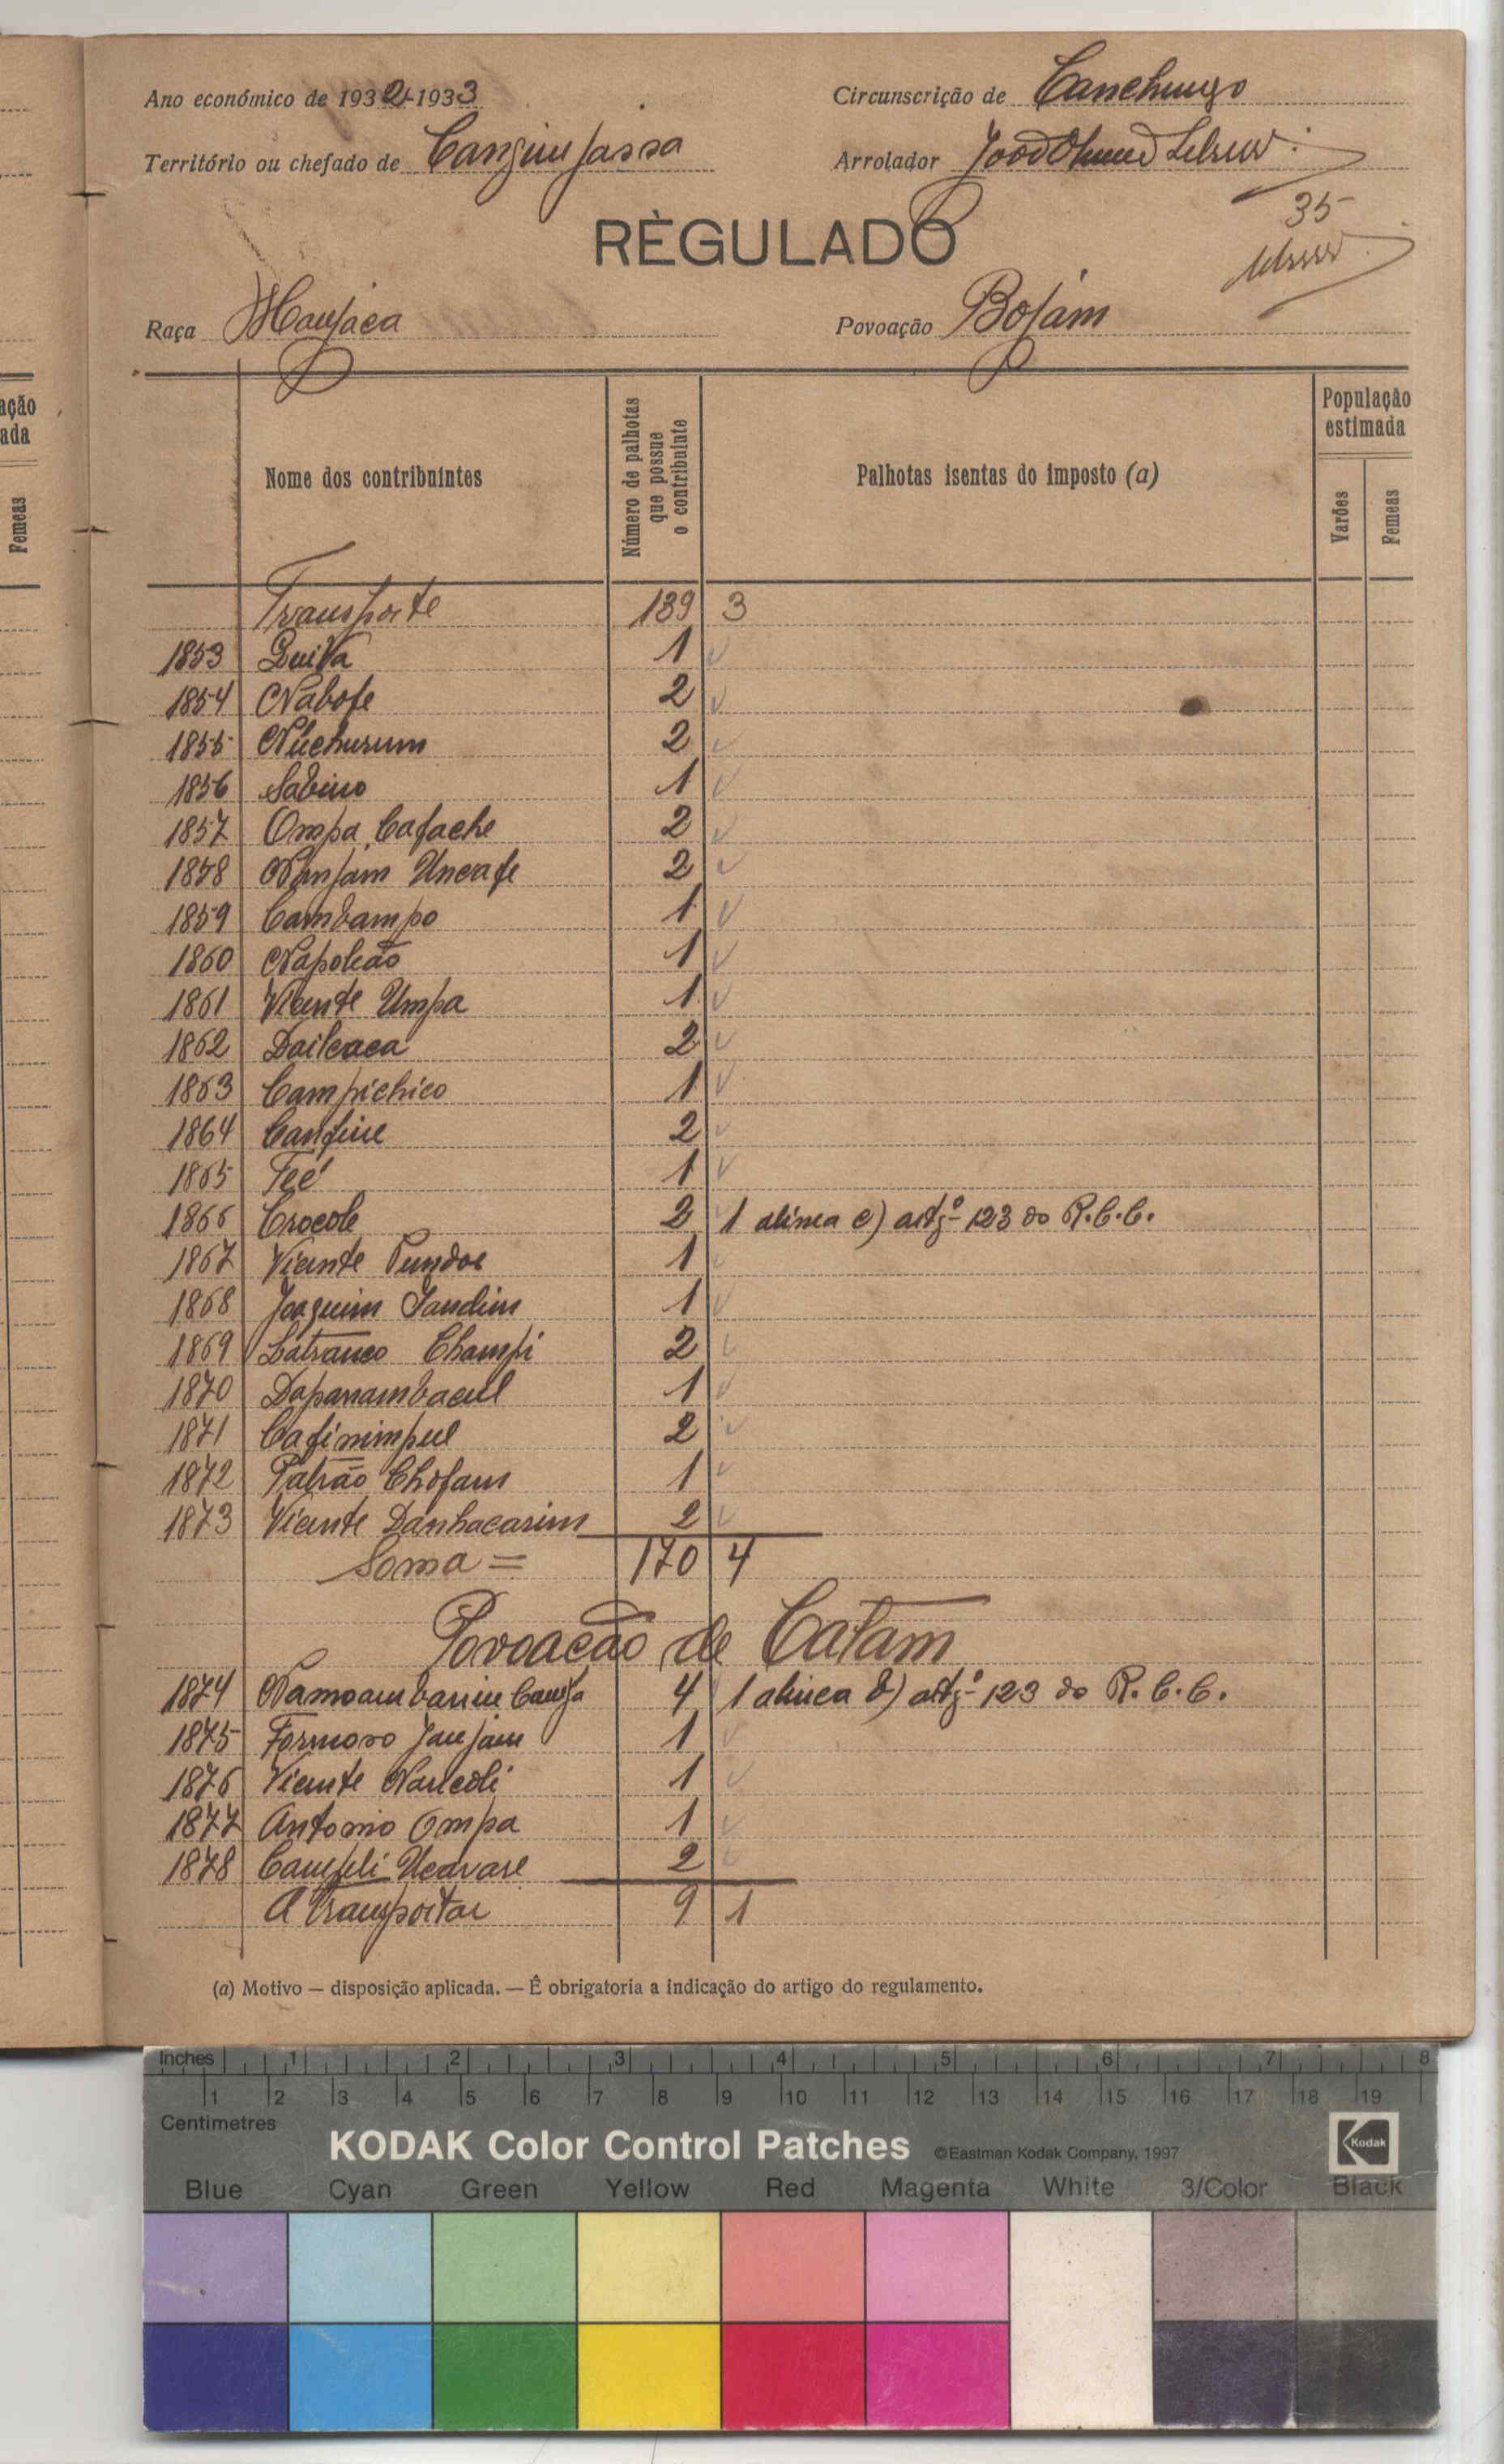 Ano económico de 1932-1933
Circunscrição de Canchungo
Território ou chefado de
Arrolador
35
RÈGULADO
Raça Manjaca
Povoação Bojám
ação
ada
Femeas
Nome dos contribuintes
Número de palhotas que possue o contribuinte
Palhotas isentas do imposto (a)
População estimada
Varões
Femeas
Transporte 139 3
1853 1
1854 Nabofe 2
1855 Nuchurum 2
1856 Sabino 1
1857 Ompa Cafache 2
1858 2
1859 Cambampo 1
1860 Napoleão 1
1861 Vicente Umpa 1
1862 Dailcaca 2
1863 Campichico 1
1864 Canfine 2
1865 Teé 1
1866 Crocole 2 1 alinea c) artgº 123 do R.C.C.
1867 Vicente 1
1868 Joaquim Jandim 1
1869 Latranco Champi 2
1870 Dapanambacul 1
1871 Cafinimpul 2
1872 Patrão Chofam 1
1873 Vicente Danhacarim 2
Soma = 170 4
Povoacão de Catam
1874 4 1 alinea b) artgº 123 do R.C.C.
1875 Formoso Janjam 1
1876 Vicente Nancoli 1
1877 Antonio Ompa 1
1878 2
A transportar 9 1
(a) Motivo — disposição aplicada. — É obrigatoria a indicação do artigo do regulamento.
Inches 1 2 3 4 5 6 7 8
1 2 3 4 5 6 7 8 9 10 11 12 13 14 15 16 17 18 19
Centimetres
KODAK Color Control Patches ©Eastman Kodak Company, 1997 Kodak
Blue Cyan Green Yellow Red Magenta White 3/Color Black